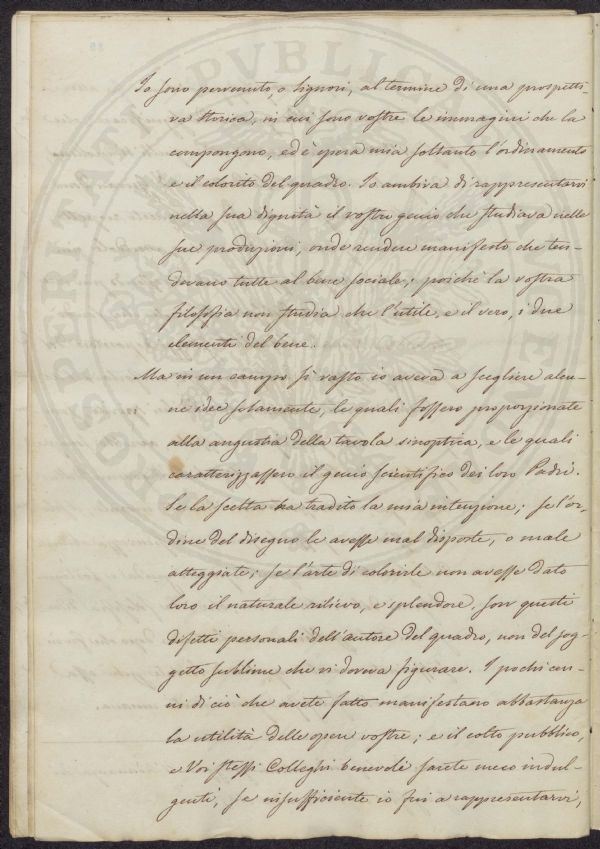 Io sono pervenuto, o Signori, al termine di una prospetti-
va storica, in cui sono vostre le immagini che la
compongono, ed è opera mia soltanto l'ordinamento
e il colorito del quadro. Io ambiva di rappresentarvi
nella sua dignità il vostro genio che studiava nelle
sue produzioni, onde rendere manifesto che ten-
devano tutte al bene sociale; poichè la vostra
filosofia non studia che l'utile, e il vero, i due
elementi del bene.
Ma in un campo sì vasto io aveva a scegliere alcu-
ne idee solamente, le quali fossero proporzionate
alla angustia della tavola sinoptica, e le quali
caratterizzassero il genio scientifico dei loro Padri.
Se la scelta ha tradito la mia intenzione; se l'or-
dine del disegno le avesse mal disposte, o male
atteggiate; se l'arte di colorirle non avesse dato
loro il naturale rilievo, e splendore, son questi
difetti personali dell'autore del quadro, non del sog-
getto sublime che vi doveva figurare. I pochi cen-
ni di ciò che avete fatto manifestano abbastanza
la utilità delle opere vostre; e il colto pubblico,
e Voi stessi Colleghi benevoli sarete meco indul-
genti, se insufficiente io fui a rappresentarvi,
PROSPERITATI PVBLICAE